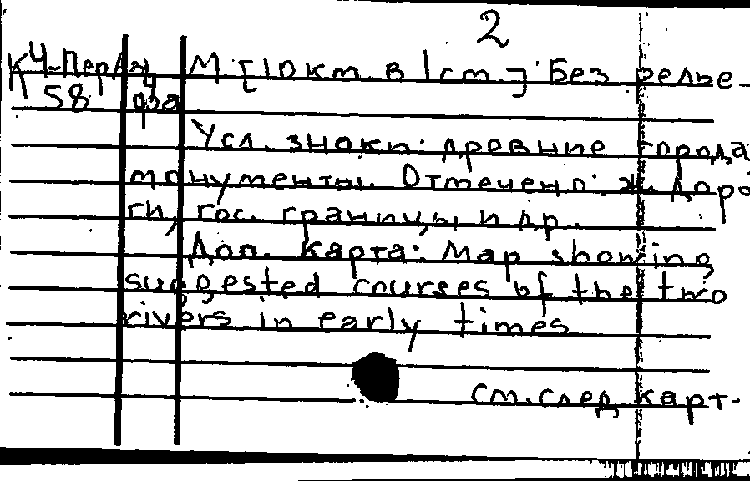 2
К4-Пер/Ан М [10км. в 1см.] Без релье-
58
Усл. знаки: древние города
монументы. Отмечено: ж. доро
ги, гос. границы и др.
Доп. карта: Map showing
suggested courses of the two
rivers in early times
см. след карт-